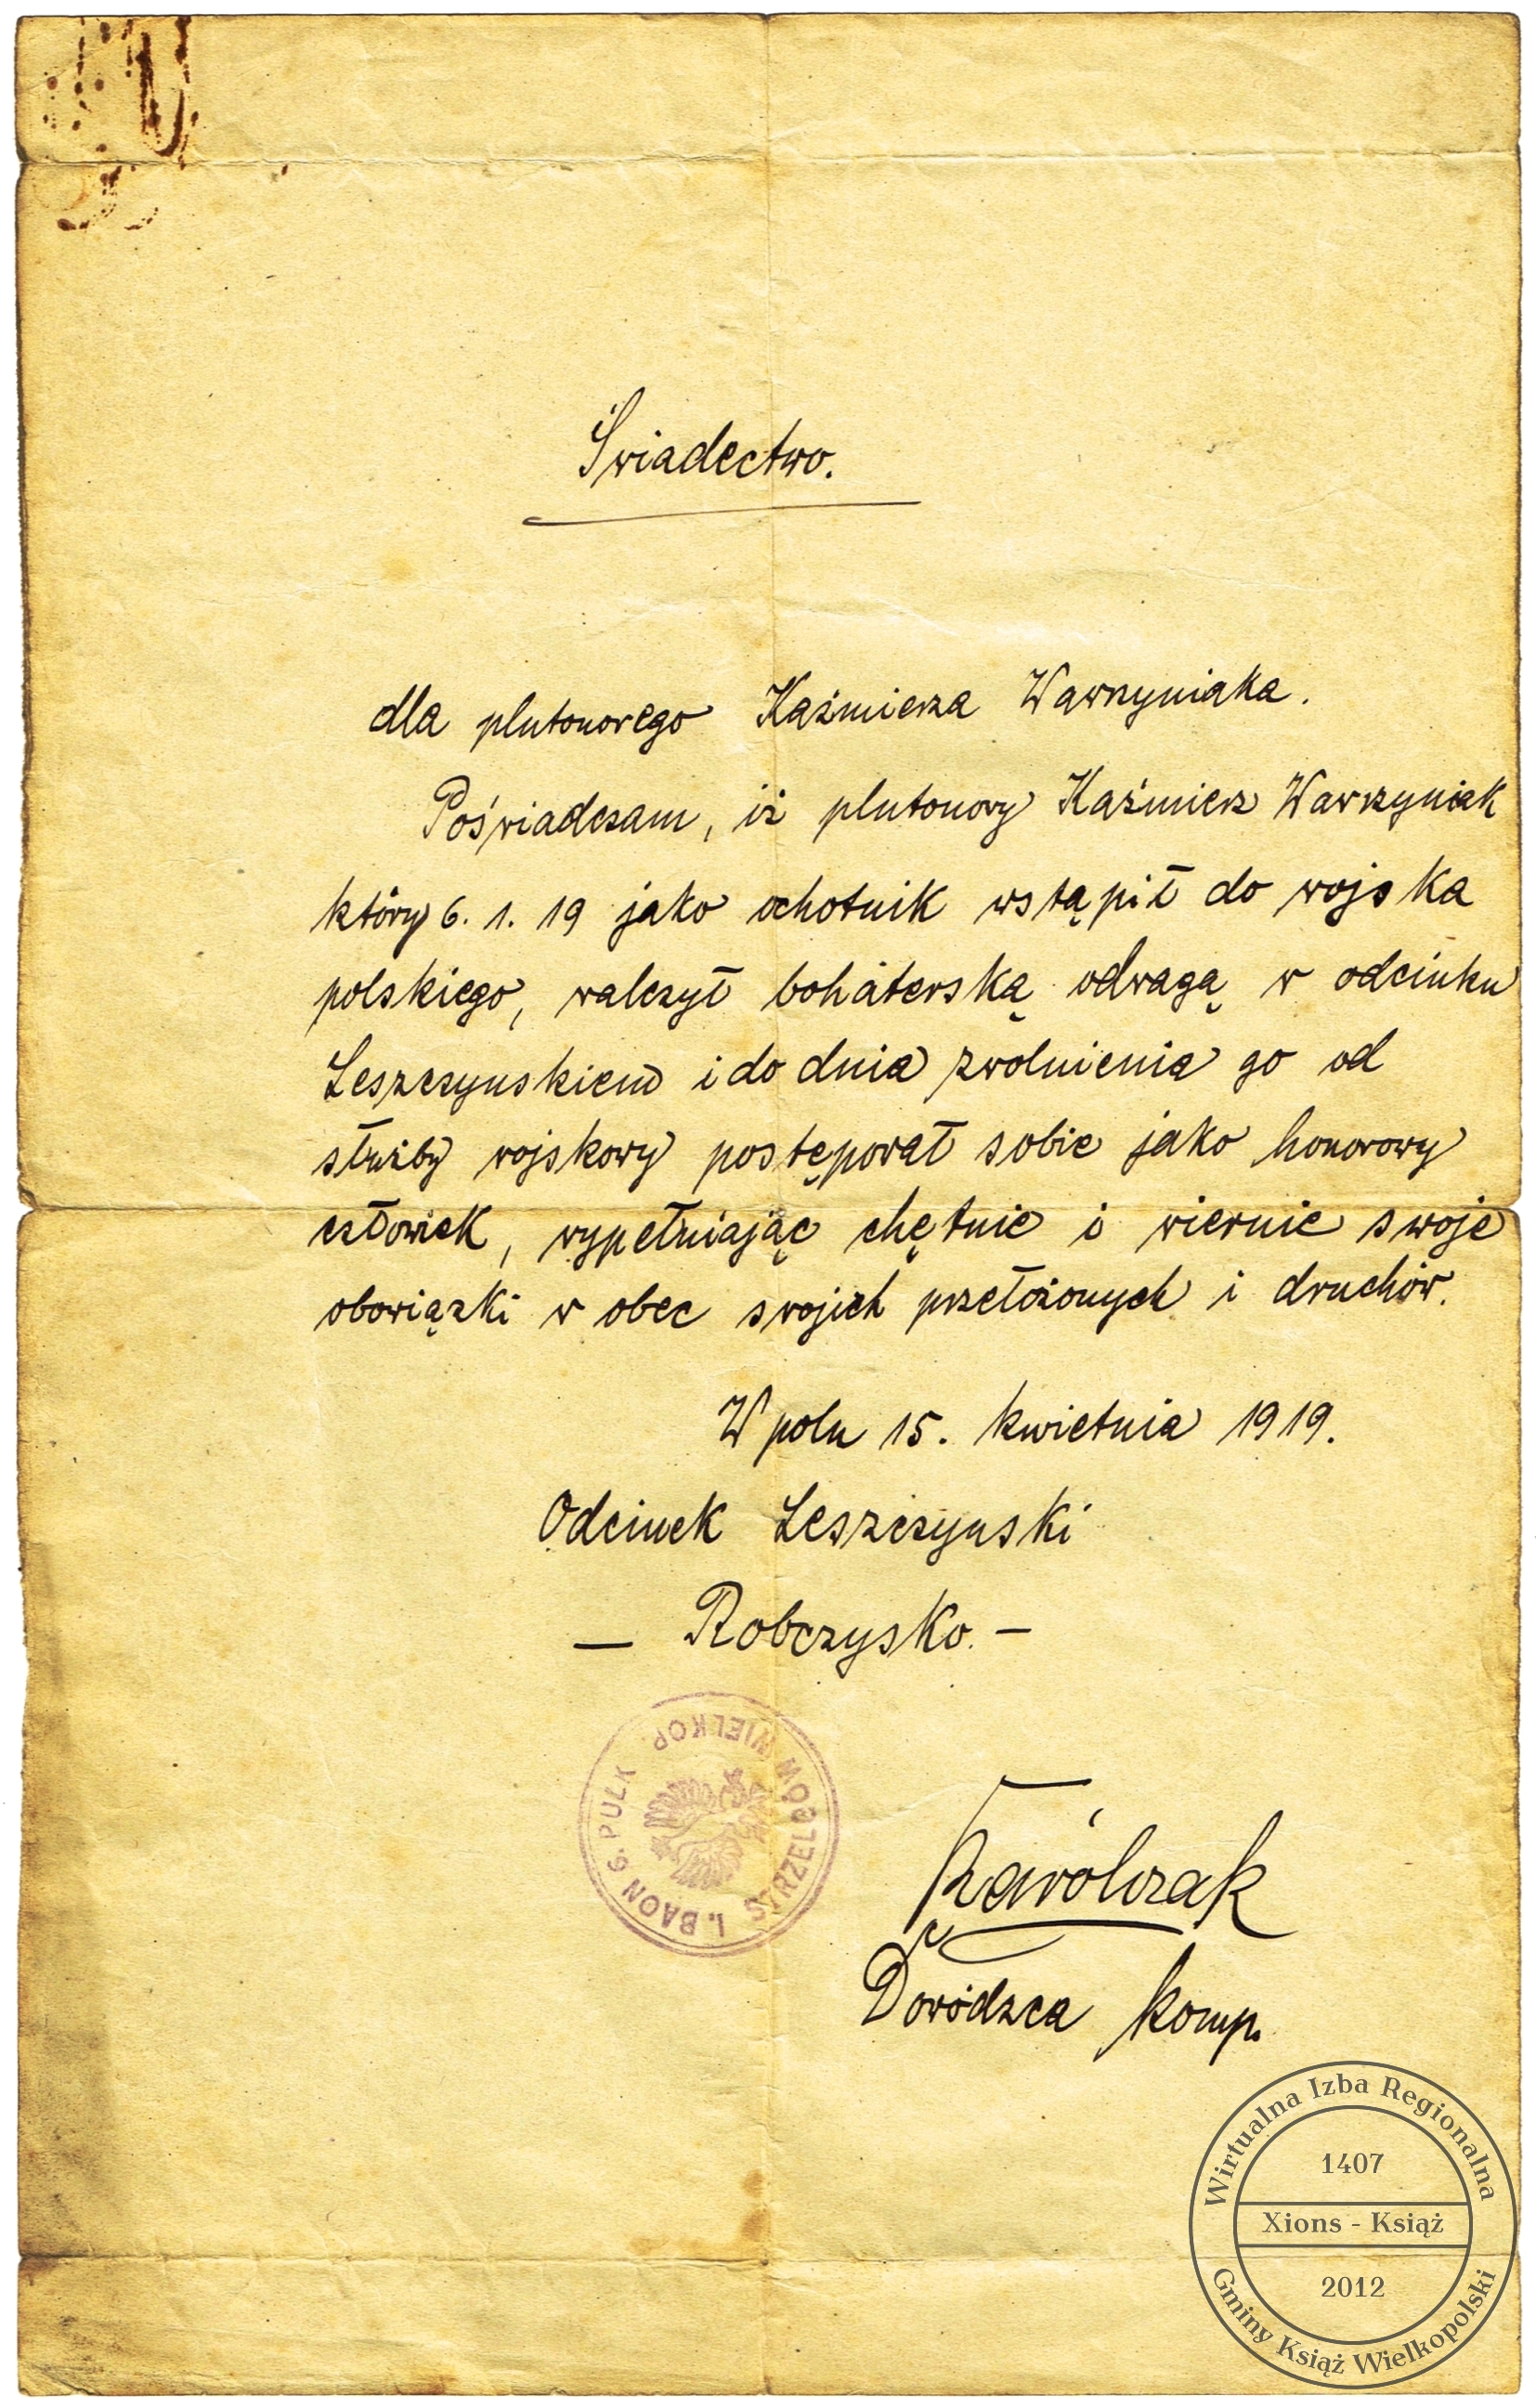 Świadectwo.
dla plutonowego Kaźmierza Wawrzyniaka.
Poświadczam, iż plutonowy Kaźmierz Wawrzyniak
który 6. 1. 19 jako ochotnik wstąpił do wojska
polskiego, walczył bohaterską odwagą w odcinku
Leszczynskiem i do dnia zwolnienia go od
służby wojskowy postępował sobie jako honorowy
człowiek, wypełniając chętnie i wiernie swoje
obowiązki w obec swojich przełożonych i druchów.
W polu 15. kwietnia 1919.
Odcinek Leszczynski
— Robczysko. —
1. BAON 6. PUŁK STRZELCÓW WIELKOP
Dowódzca komp.
Wirtualna Izba Regionalna
1407
Xions - Książ
2012
Gminy Książ Wielkopolski